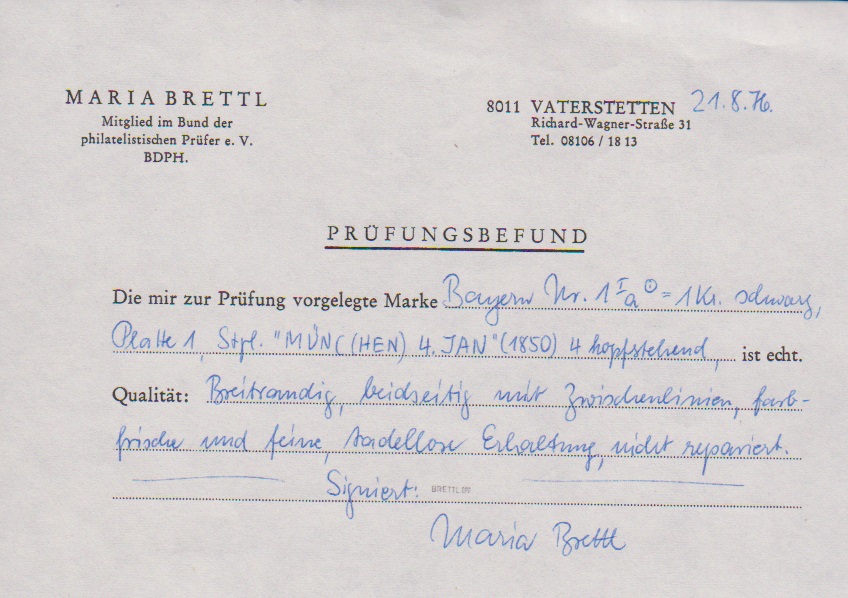 MARIA BRETTL
Mitglied im Bund der
philatelistischen Prüfer e. V.
BDPH.
8011 VATERSTETTEN 21.8.76.
Richard-Wagner-Straße 31
Tel. 08106 / 18 13
PRÜFUNGSBEFUND
Die mir zur Prüfung vorgelegte Marke Bayern Nr. 1 I a ⊙ = 1 Kr. schwarz,
Platte 1, Stpl. "MÜNC(HEN) 4. JAN" (1850) 4 kopfstehend, ist echt.
Qualität: Breitrandig, beidseitig mit Zwischenlinien, farb-
frische und feine, tadellose Erhaltung, nicht repariert.
Signiert: BRETTL BPP
Maria Brettl